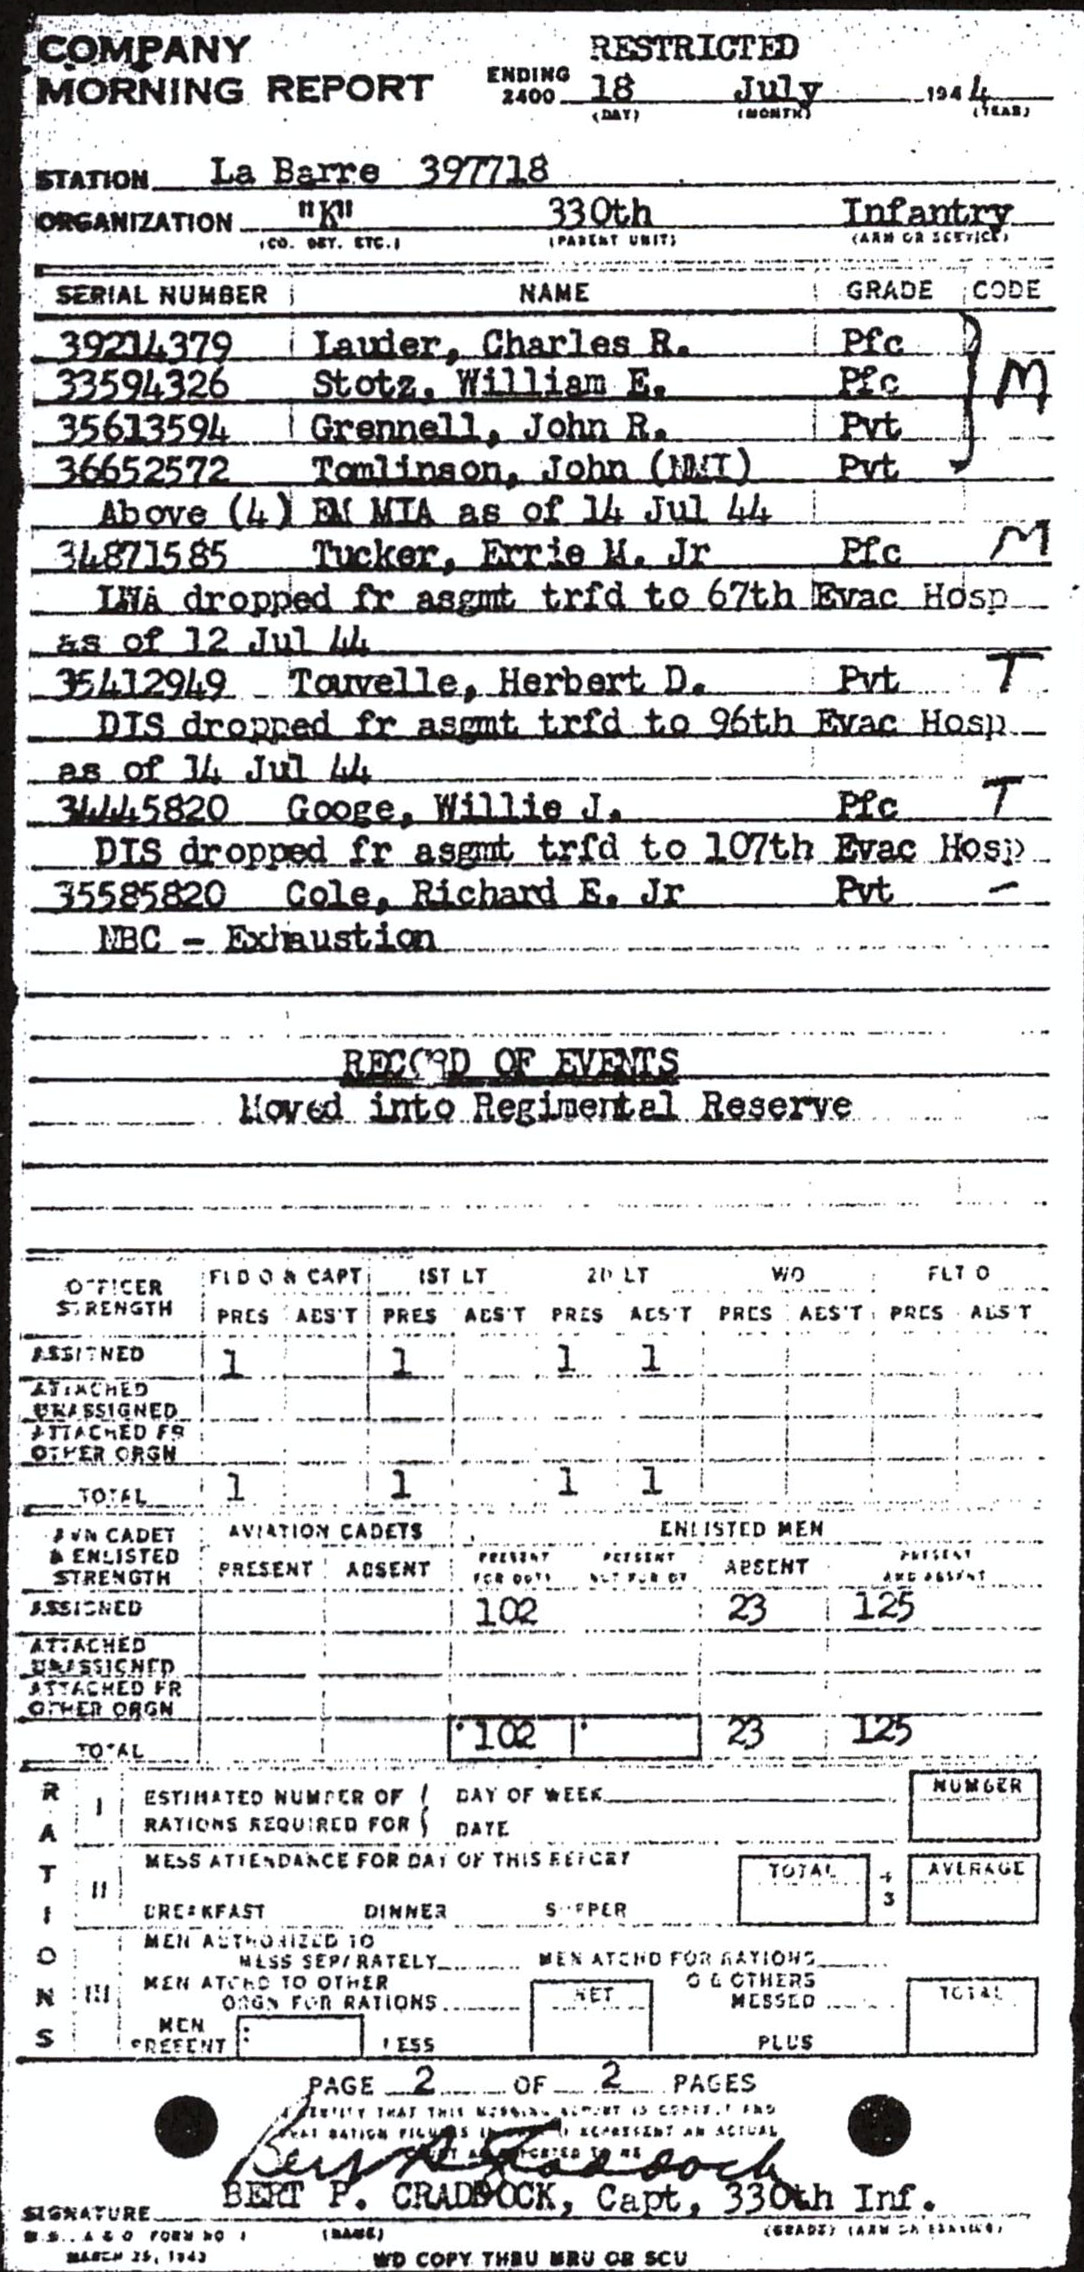 COMPANY
MORNING REPORT
RESTRICTED
ENDING 2400 18 July 1944
(DAY) (MONTH) (YEAR)
STATION La Barre 397718
ORGANIZATION "K" 330th Infantry
(CO. DET. ETC.) (PARENT UNIT) (ARM OR SERVICE)
SERIAL NUMBER NAME GRADE CODE
39214379 Lauder, Charles R. Pfc
33594326 Stotz, William E. Pfc M
35613594 Grennell, John R. Pvt
36652572 Tomlinson, John (NMI) Pvt
Above (4) EM MIA as of 14 Jul 44
34871585 Tucker, Errie M. Jr Pfc M
LWA dropped fr asgmt trfd to 67th Evac Hosp
as of 12 Jul 44
35412949 Touvelle, Herbert D. Pvt T
DIS dropped fr asgmt trfd to 96th Evac Hosp
as of 14 Jul 44
34445820 Googe, Willie J. Pfc T
DIS dropped fr asgmt trfd to 107th Evac Hosp
35585820 Cole, Richard E. Jr Pvt –
NBC - Exhaustion
RECORD OF EVENTS
Moved into Regimental Reserve
OFFICER STRENGTH FLD O & CAPT 1ST LT 2D LT WO FLT O
PRES ABS'T PRES ABS'T PRES ABS'T PRES ABS'T PRES ABS'T
ASSIGNED 1 1 1 1
ATTACHED UNASSIGNED
ATTACHED FR OTHER ORGN
TOTAL 1 1 1 1
AVN CADET & ENLISTED STRENGTH AVIATION CADETS ENLISTED MEN
PRESENT ABSENT PRESENT FOR DUTY PRESENT NOT FOR DY ABSENT PRESENT AND ABSENT
ASSIGNED 102 23 125
ATTACHED UNASSIGNED
ATTACHED FR OTHER ORGN
TOTAL 102 23 125
RATIONS
I ESTIMATED NUMBER OF RATIONS REQUIRED FOR DAY OF WEEK DATE NUMBER
II MESS ATTENDANCE FOR DAY OF THIS REPORT
BREAKFAST DINNER SUPPER TOTAL ÷ 3 AVERAGE
III MEN AUTHORIZED TO MESS SEPARATELY MEN ATCHD FOR RATIONS
MEN ATCHD TO OTHER ORGN FOR RATIONS NET O & OTHERS MESSED TOTAL
MEN PRESENT LESS PLUS
PAGE 2 OF 2 PAGES
I CERTIFY THAT THIS MORNING REPORT IS CORRECT AND
THAT RATION FIGURES REPRESENT AN ACTUAL
REPORTED TO ME
BERT P. CRADDOCK, Capt, 330th Inf.
SIGNATURE
(NAME) (GRADE) (ARM OR SERVICE)
W.D., A G O FORM NO 1
MARCH 25, 1943
WD COPY THRU MRU OR SCU